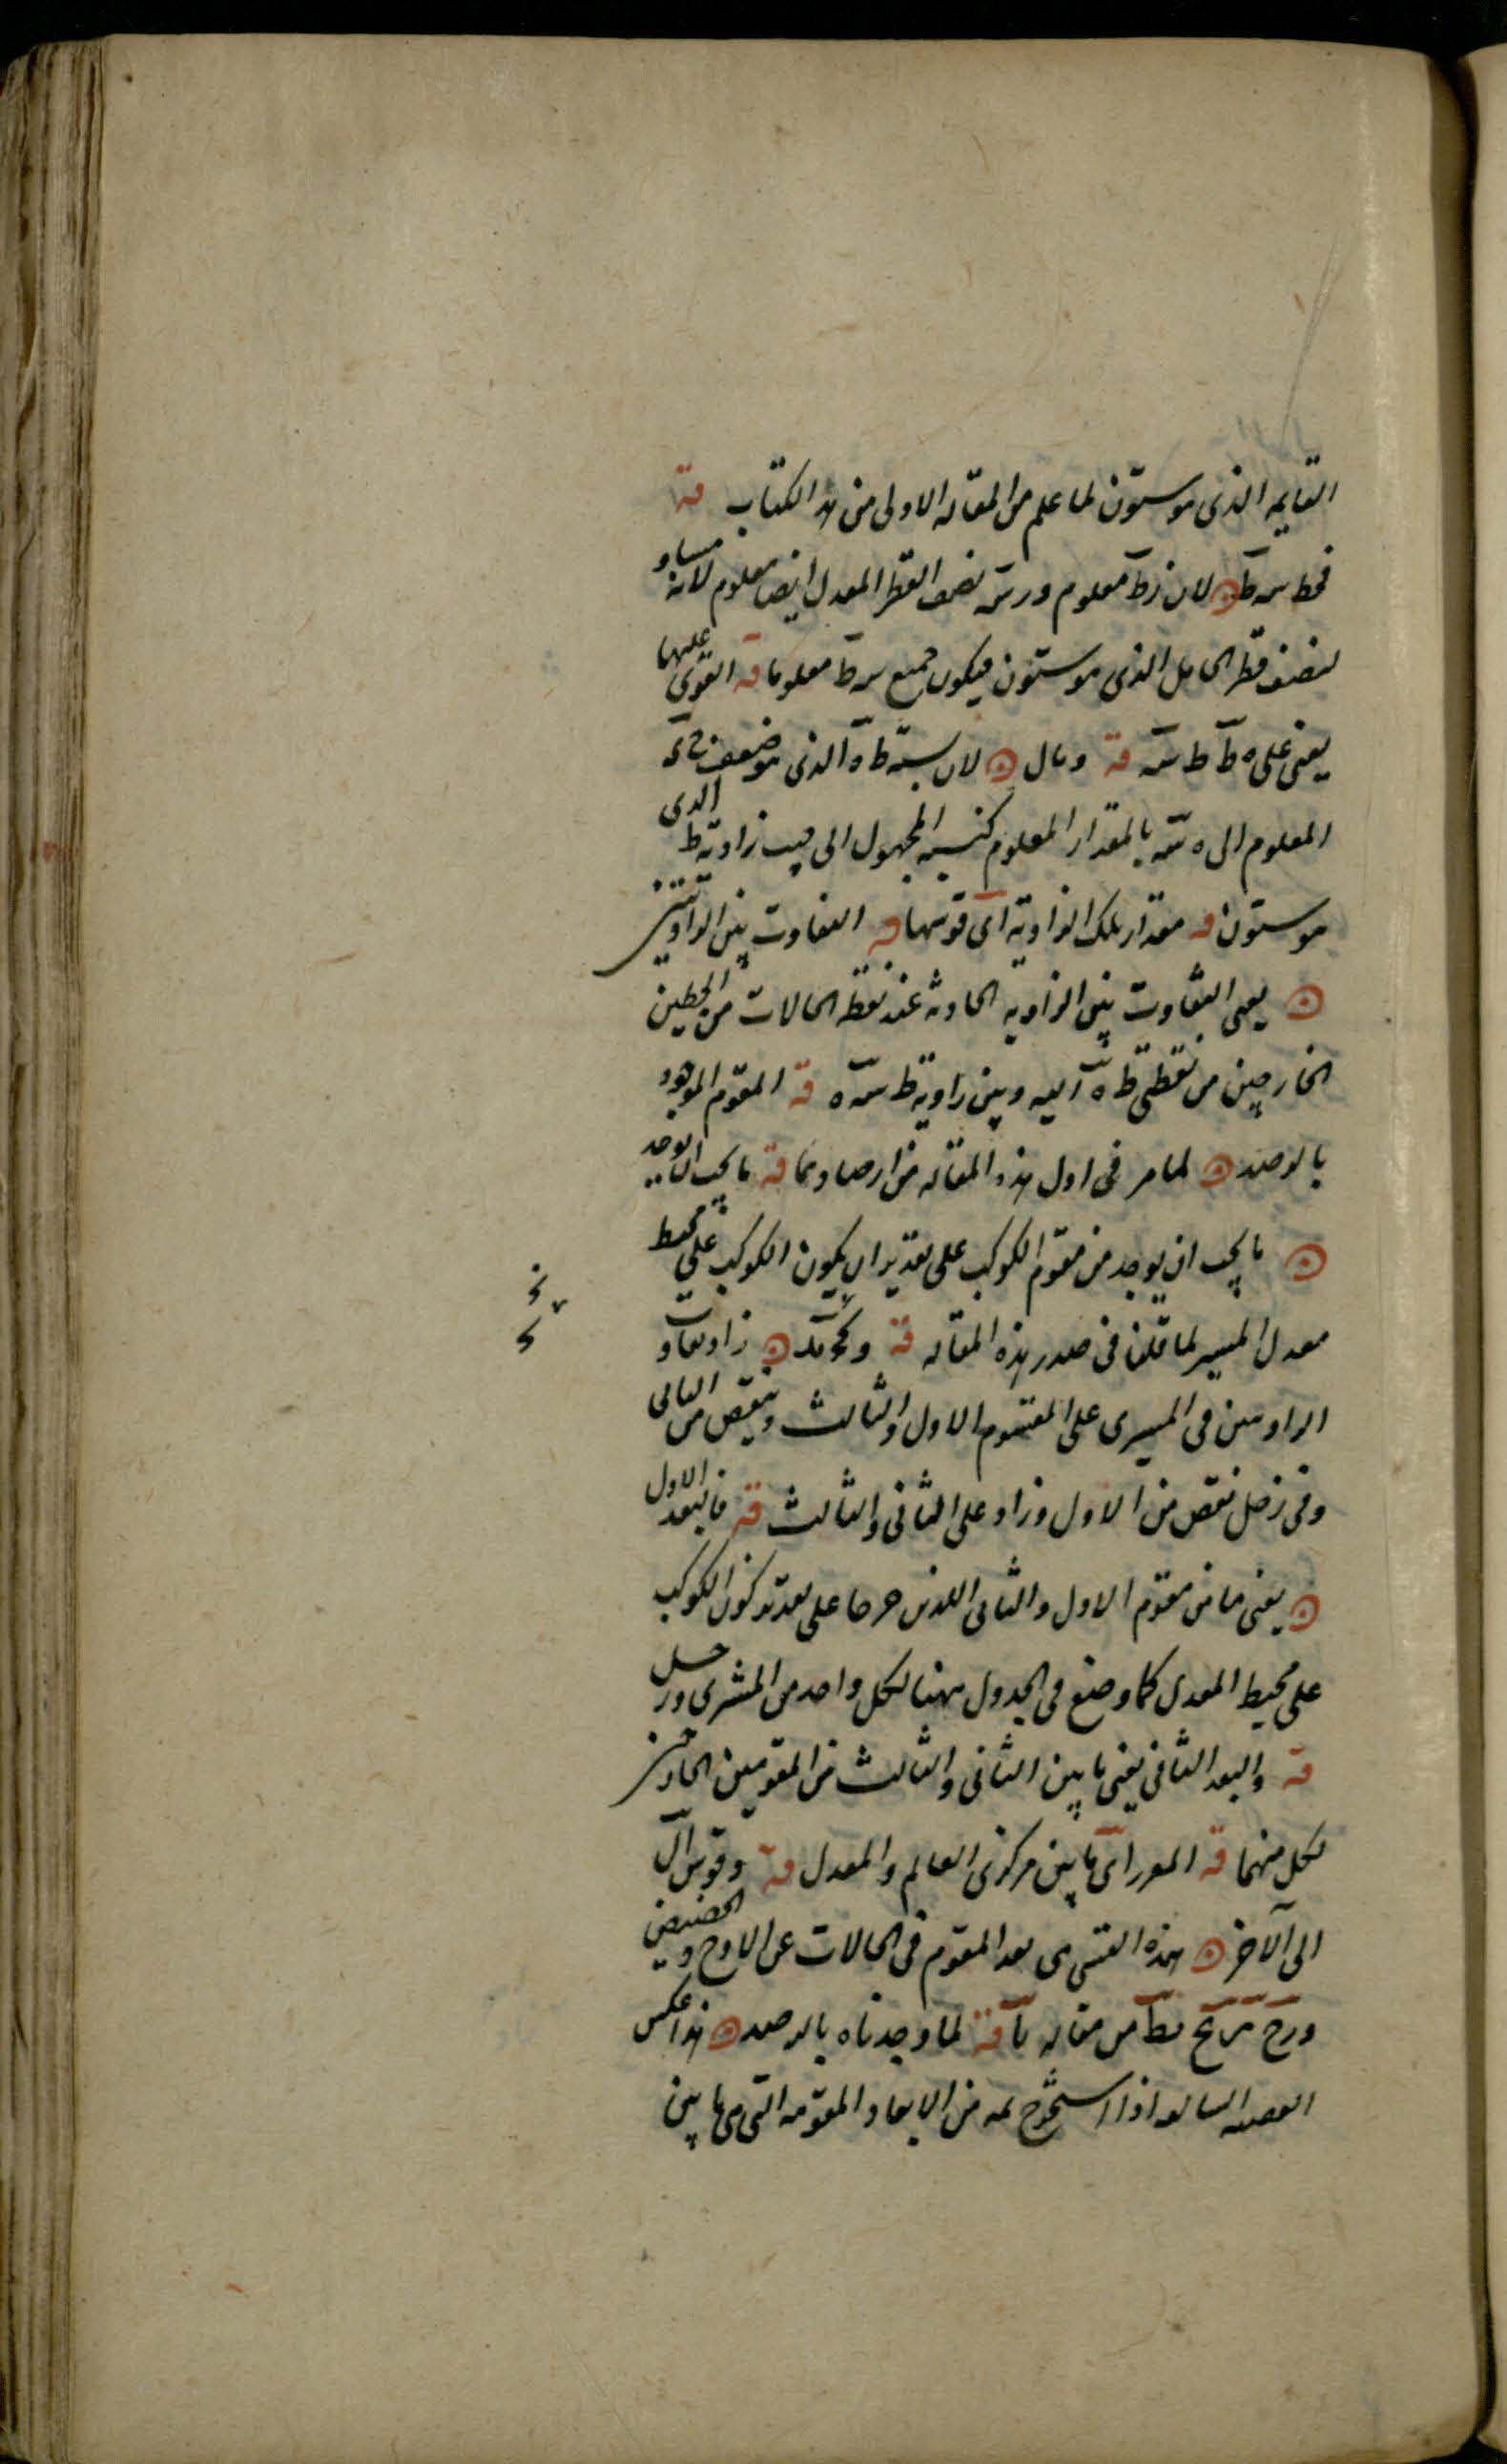 القايمه الذى هو ستون لما علم من المقاله الاولى من هذا الكتاب قه
فخط سه ط لان زط معلوم و رسه نصف القطر المعدل ايضا معلوم لانه مساو
لنصف قطر الحامل الذى هو ستون فيكون جميع سه ط معلوما قه القوى عليها
يعنى على ه ط ط سه قه وىال لان نسبة ط ه الذى هو ضعف
المعلوم الى ه سه بالمقدار المعلوم كنسبه المجهول الى جيب زاوية ط الذى
هو ستون قه مقدار تلك الزاوية اى قوسها قه التفاوت بين الزاويتين
يعنى التفاوت بين الزاويه الحادثه عند نقطه الحالات من الخطين
الخارجين من نقطتى ط ه اليه وبين زاوية ط سه ه قه المقوم الموجود
بالرصد لما مر فى اول هذه المقاله من ارصادنا قه ما يجب ان يوجد
ما يجب ان يوجد من مقوم الكوكب على تقدير ان يكون الكوكب على محيط
معدل المسير لما قلنا فى صدر هذه المقاله قه زاد تفاوت
الزاويتين فى المشترى على المقوم الاول والثالث وينقص من الثانى
وفى زحل نقص من الاول وزاد على الثانى والثالث قه فالبعد الاول
يعنى ما من مقوم الاول والثانى اللذين خرجا على تقدير كون الكوكب
على محيط المعدل كما وضع فى الجدول ههنا لكل واحد من المشترى وزحل
قه والبعد الثانى يعنى ما بين الثانى والثالث من المقومين الحادثين
لكل منهما قه اى ما بين مركزى العالم والمعدل قه وقوس ال
الى الآخر هذه القسى هى بعد المقوم فى الحالات عن الاوج والحضيض
من مقاله يا قه لما وجدناه بالرصد هذا عكس
اذا استخرج ثمه من الابعاد المقومه التى هى ما بين